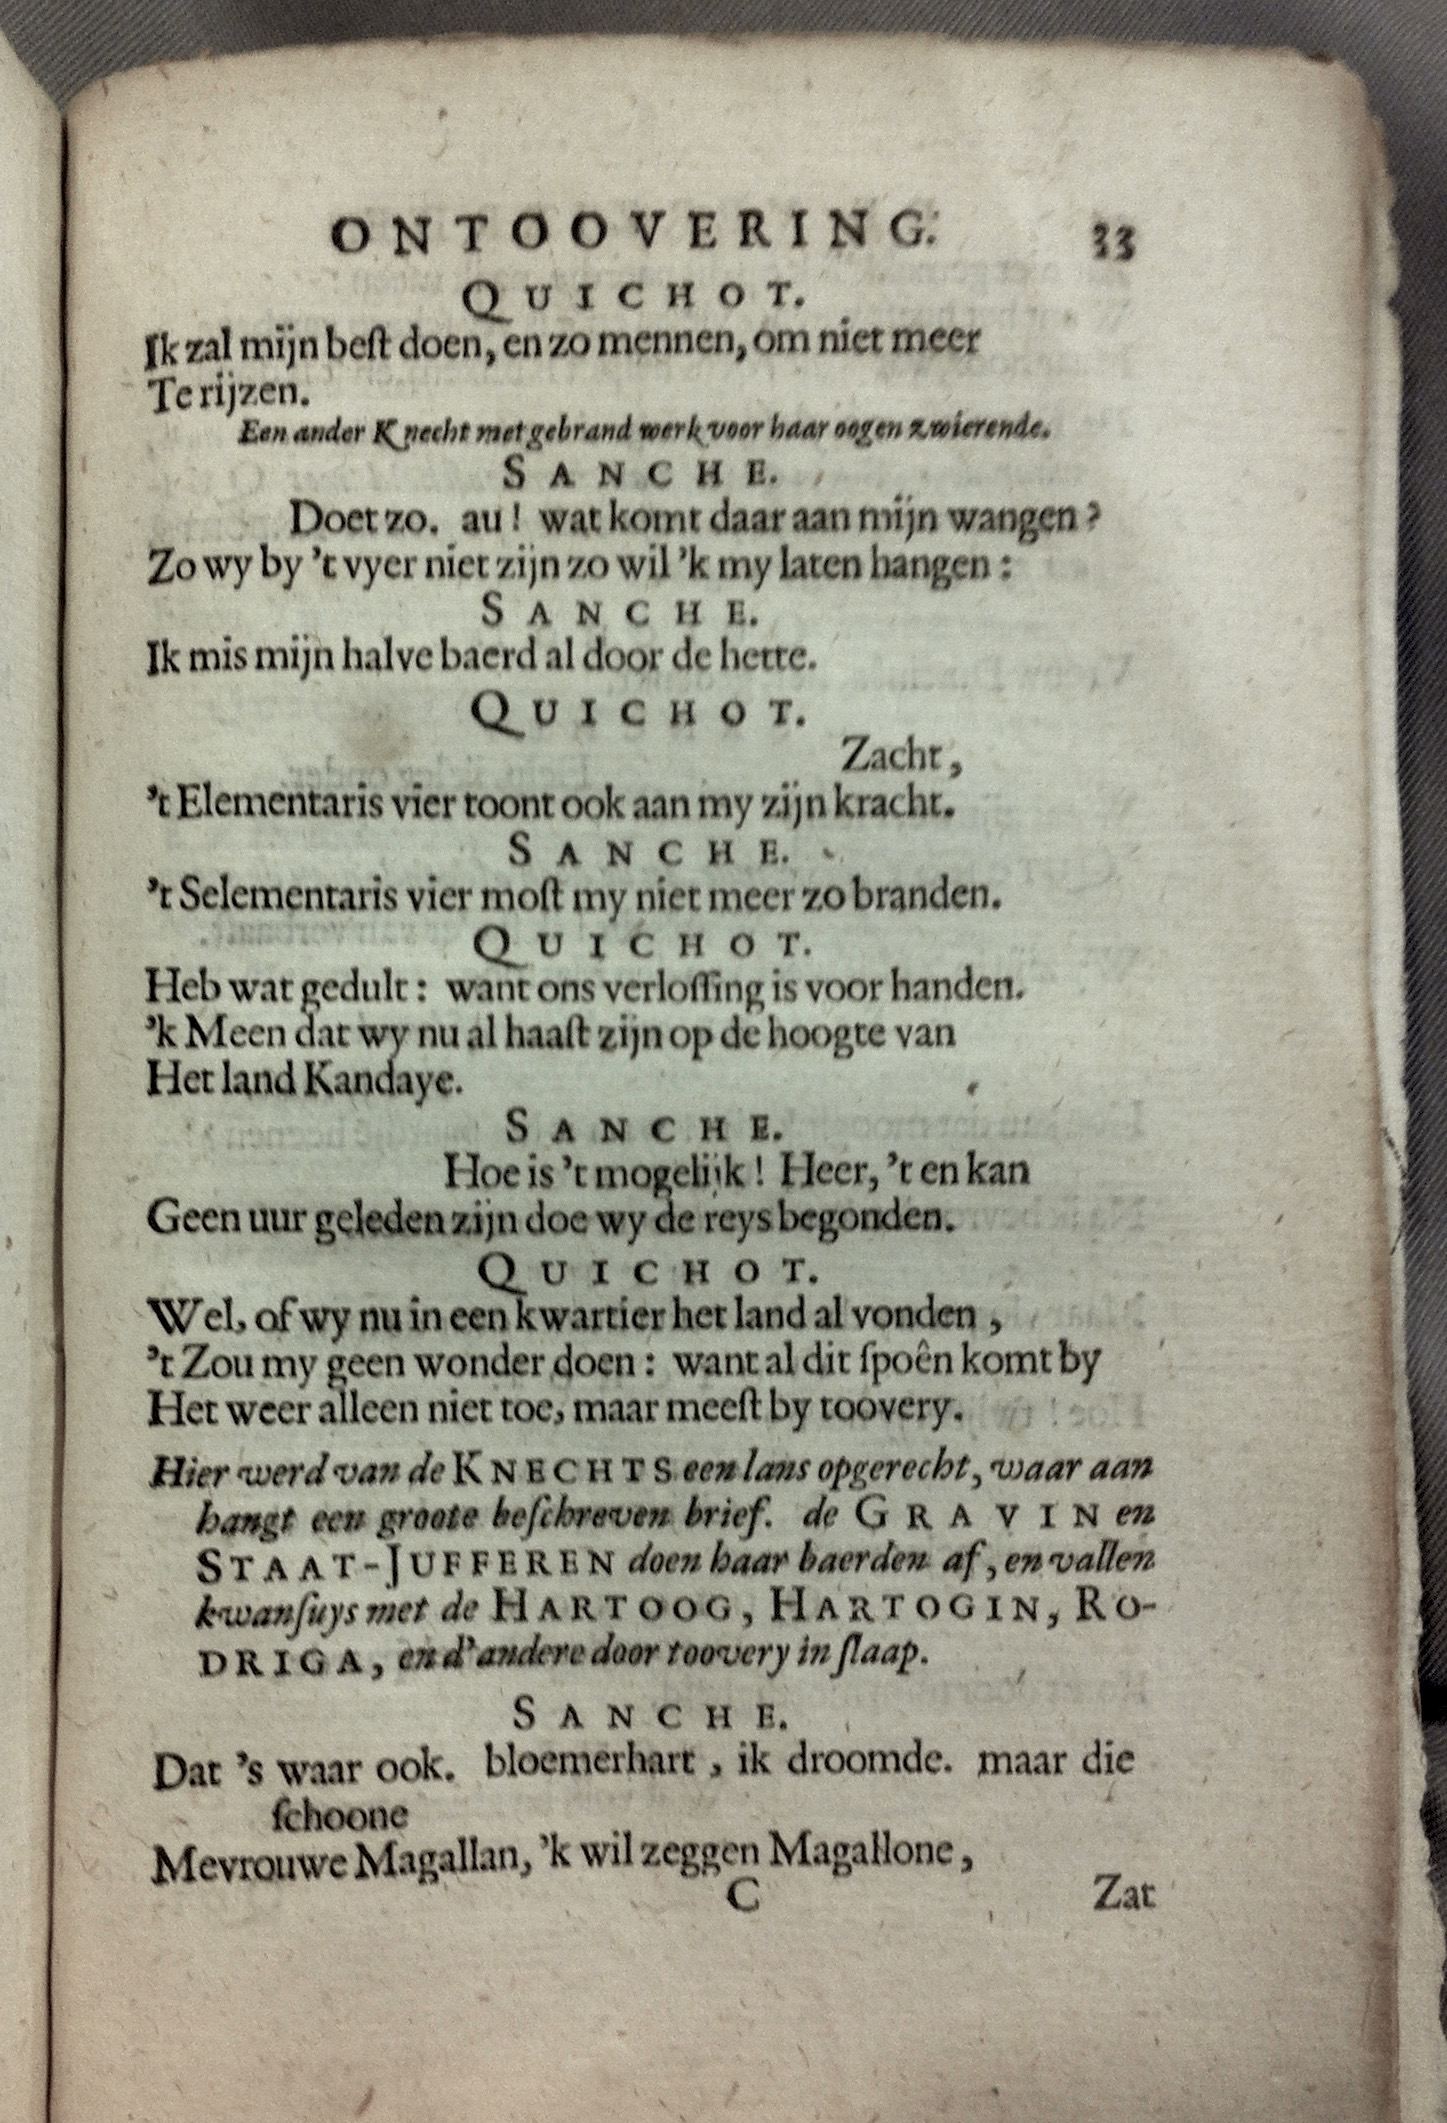 ONTOOVERING. 33
QUICHOT.
Ik zal mijn beſt doen, en zo mennen, om niet meer
Te rijzen.
Een ander Knecht met gebrand werk voor haar oogen zwierende.
SANCHE.
Doet zo. au! wat komt daar aan mijn wangen?
Zo wy by 't vyer niet zijn zo wil 'k my laten hangen:
SANCHE.
Ik mis mijn halve baerd al door de hette.
QUICHOT.
Zacht,
't Elementaris vier toont ook aan my zijn kracht.
SANCHE.
't Selementaris vier moſt my niet meer zo branden.
QUICHOT.
Heb wat gedult: want ons verloſſing is voor handen.
'k Meen dat wy nu al haaſt zijn op de hoogte van
Het land Kandaye.
SANCHE.
Hoe is 't mogelijk! Heer, 't en kan
Geen uur geleden zijn doe wy de reys begonden.
QUICHOT.
Wel, of wy nu in een kwartier het land al vonden,
't Zou my geen wonder doen: want al dit ſpoên komt by
Het weer alleen niet toe, maar meeſt by toovery.
Hier werd van de KNECHTS een lans opgerecht, waar aan
hangt een groote beſchreven brief. de GRAVIN en
STAAT-JUFFEREN doen haar baerden af, en vallen
kwanſuys met de HARTOOG, HARTOGIN, RO-
DRIGA, en d'andere door toovery in ſlaap.
SANCHE.
Dat 's waar ook. bloemerhart, ik droomde. maar die
ſchoone
Mevrouwe Magallan, 'k wil zeggen Magallone,
C Zat